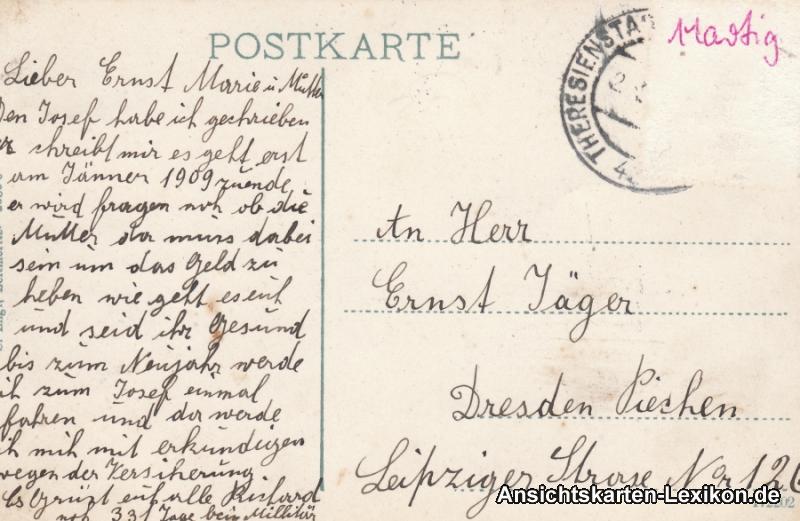 POSTKARTE
Martig
THERESIENSTA
Lieber Ernst Marie u Mutter
Den Josef habe ich gechrieben
er schreibt mir es geht erst
am Jänner 1909 zuende
er wird fragen noh ob die
Mutter da muss dabei
sein um das Geld zu
heben wie geht es euh
und seid ihr Gesund
bis zum Neujahr werde
ih zum Josef einmal
fahren und da werde
ih mih mit erkundigen
wegen der Versicherung.
Es Grüzt euh alle Richard
noh 331 Tage bein Militär
An Herr
Ernst Jäger
Dresden Pieschen
Leipziger Strase No 126
Ansichtskarten-Lexikon.de
172202